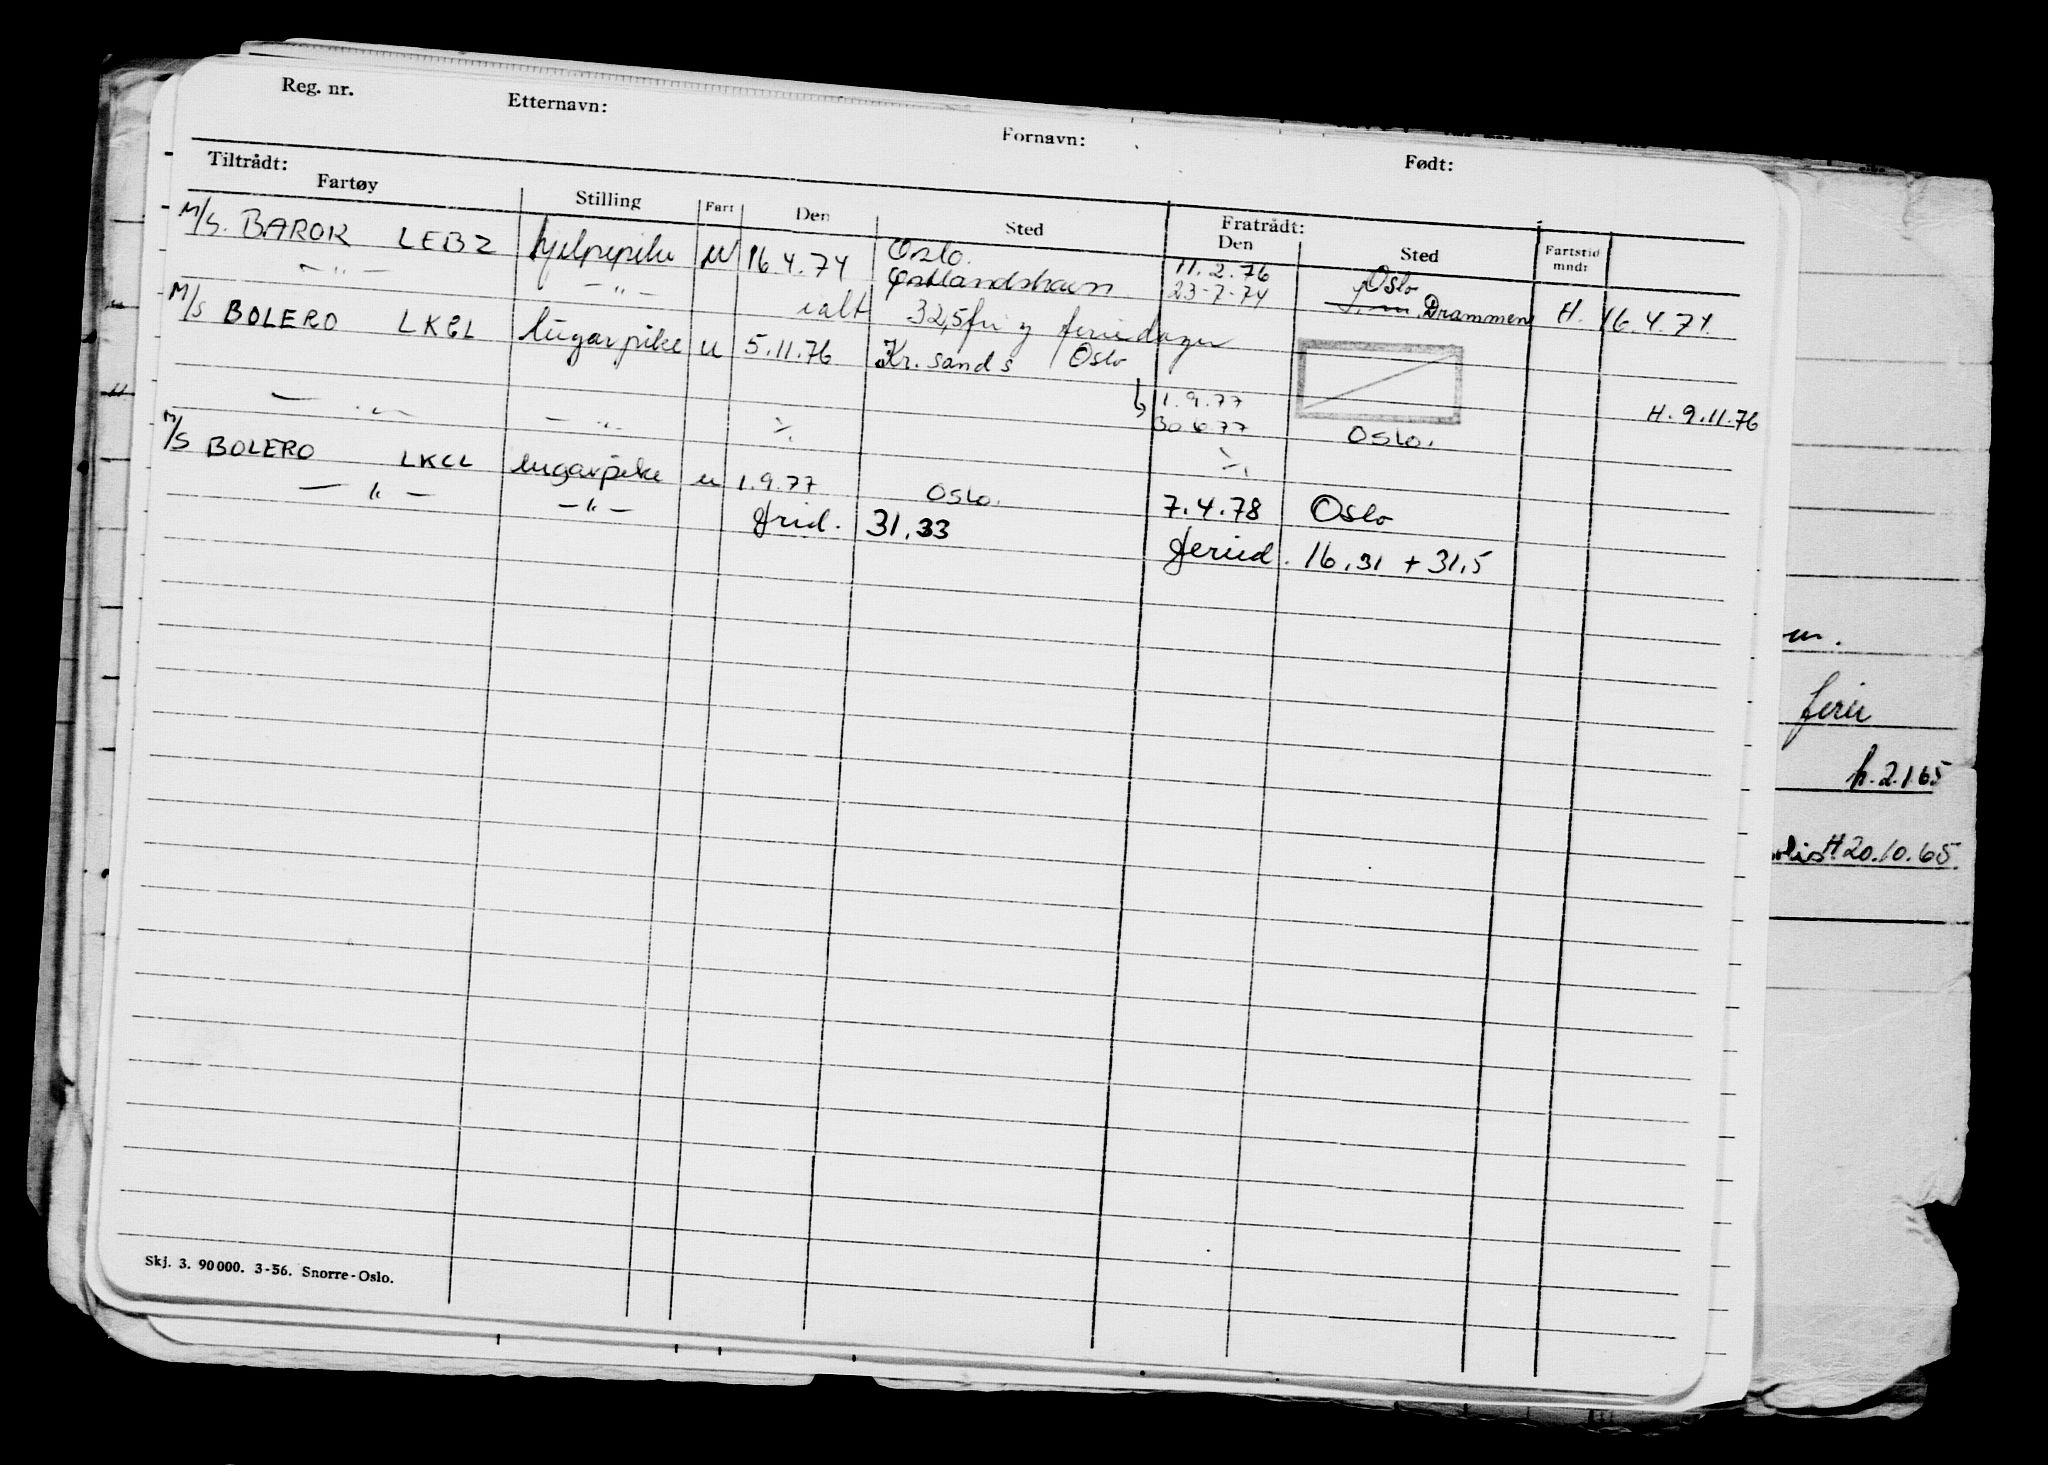 Reg. nr. Etternavn: Fornavn: Født:
Tiltrådt: Fratrådt:
Fartøy Stilling Fart Den Sted Den Sted Fartstid mndr
M/S. BAROK LEBZ hjelpepike u 16.4.74 Oslo. 11.2.76 Oslo
— " — — " — Østlandshavn 23-7-74 Drammen H. 16.4.74.
ialt 32,5 fri og feriedager
M/S BOLERO LKCL lugarpike u 5.11.76 Kr.sands Oslo
1.9.77 H. 9.11.76
— " — — " — ./. 30.6.77 Oslo.
./.
M/S BOLERO LKCL lugarpike u 1.9.77 Oslo.
— " — — " — 7.4.78 Oslo
frid. 31.33
feried. 16.31 + 31.5
ferie
h. 2.1.65
H 20.10.65
Skj. 3. 90000. 3-56. Snorre-Oslo.